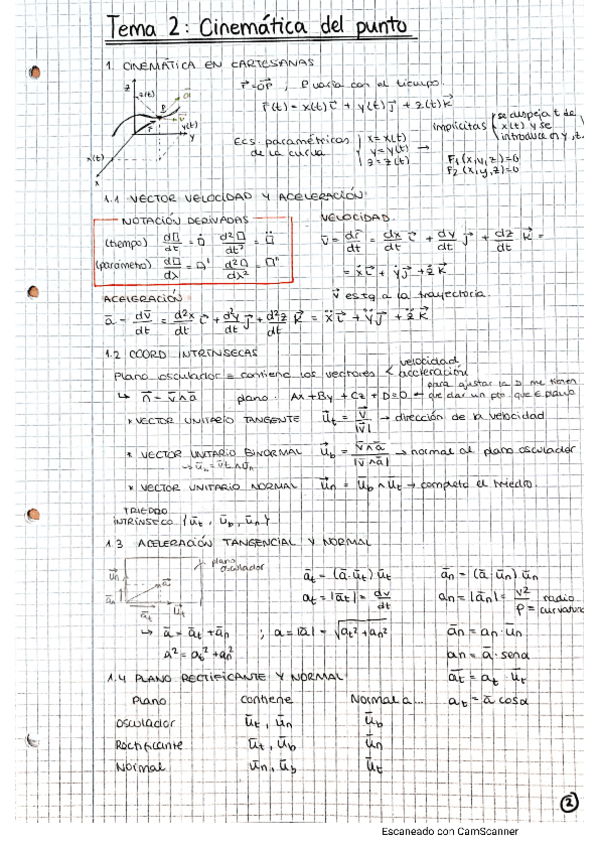 Tema 2: Cinemática del punto
1. CINEMÁTICA EN CARTESIANAS
r⃗ = OP⃗ ; P varía con el tiempo.
r⃗(t) = x(t) i⃗ + y(t) j⃗ + z(t) k⃗
Ecs. paramétricas de la curva { x = x(t) y = y(t) z = z(t) →
implícitas { se despeja t de x(t) y se introduce en y, z.
F₁(x,y,z)=0
F₂(x,y,z)=0
z z(t) P y(t) y x(t) x
1.1 VECTOR VELOCIDAD Y ACELERACIÓN
NOTACIÓN DERIVADAS
(tiempo) d□/dt = □̇ d²□/dt² = □̈
(parámetro) d□/dλ = □' d²□/dλ² = □''
VELOCIDAD
v̄ = dr̄/dt = dx/dt i⃗ + dy/dt j⃗ + dz/dt k⃗ =
= ẋ i⃗ + ẏ j⃗ + ż k⃗
v⃗ es tg a la trayectoria.
ACELERACIÓN
ā = dv̄/dt = d²x/dt² i⃗ + d²y/dt² j⃗ + d²z/dt² k⃗ = ẍ i⃗ + ÿ j⃗ + z̈ k⃗
1.2 COORD INTRÍNSECAS
Plano osculador = contiene los vectores < velocidad aceleración
↳ n̄ = v̄∧ā plano: Ax + By + Cz + D = 0 ← para ajustar la D me tienen que dar un pto que ∈ plano
* VECTOR UNITARIO TANGENTE u⃗t = v⃗/|v⃗| → dirección de la velocidad
* VECTOR UNITARIO BINORMAL u⃗b = v̄∧ā/|v̄∧ā| → normal al plano osculador
* VECTOR UNITARIO NORMAL u⃗n = ūb∧ūt → completo el triedro.
TRIEDRO
INTRÍNSECO {ūt, ūb, ūn}
1.3 ACELERACIÓN TANGENCIAL Y NORMAL
plano osculador
ūn ān ā āt ūt
āt = (ā·ūt) ūt ān = (ā·ūn) ūn
at = |āt| = dv/dt an = |ān| = v²/ρ = radio curvatura
↳ ā = āt + ān ; a = |ā| = √(at² + an²) ān = an·ūn
a² = at² + an² an = ā·senα
1.4 PLANO RECTIFICANTE Y NORMAL āt = at·ūt
Plano contiene Normal a... at = ā cosα
Osculador ūt, ūn ūb
Rectificante ūt, ūb ūn
Normal ūn, ūb ūt
2
Escaneado con CamScanner